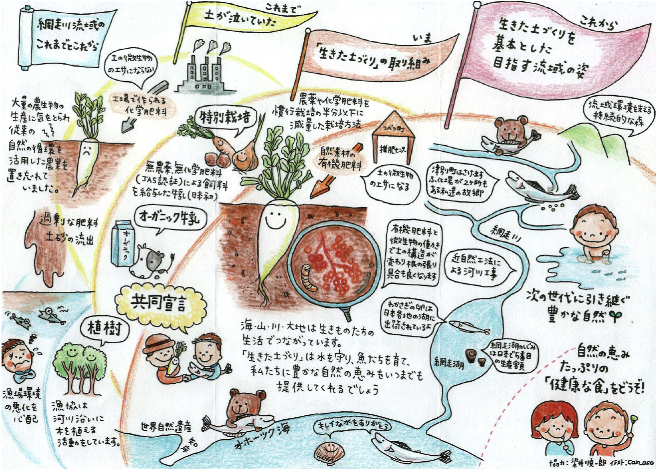 網走川流域の
これまでとこれから
これまで
土が泣いていた
いま
「生きた土づくり」の取り組み
これから
生きた土づくりを
基本とした
目指す流域の姿
土の微生物
のエサにならない
工場で作られる
化学肥料
大量の農生物の
生産に気をとられ
従来の
自然の循環を
活用した農業を
置き忘れて
いました。
過剰な肥料
土砂の流出
漁場環境
の悪化を
心配
特別栽培
農薬や化学肥料を
慣行栽培の半分以下に
減量した栽培方法
自然素材の
有機肥料
つべつ町
堆肥センター
土の微生物
のエサになる
無農薬、無化学肥料
(JAS認証)による飼料
を給与した牛乳(日本初)
オーガニック牛乳
オーガニック
共同宣言
植樹
漁協は
河川沿いに
木を植える
活動をしています。
有機肥料と
微生物の働き
で土の構造が
変わり根の張り
具合も良くなります
海・山・川・大地は生きものたちの
生活でつながっています。
「生きた土づくり」は水を守り、魚たちを育て、
私たちに豊かな自然の恵みをいつまでも
提供してくれるでしょう
流域環境を支える
持続的な森
津別町はさけます
ふ化場が2ヶ所も
ある私達の故郷
網走川
近自然工法に
よる河川工事
わかさぎの卵は
日本各地の湖に
出荷されている
網走湖
網走湖のしじみ
は日本でも有数
の生産量
次の世代に引き継ぐ
豊かな自然
自然の恵み
たっぷりの
「健康な食」をどうぞ!
世界自然遺産
知床
オホーツク海
キレイな水をありがとう